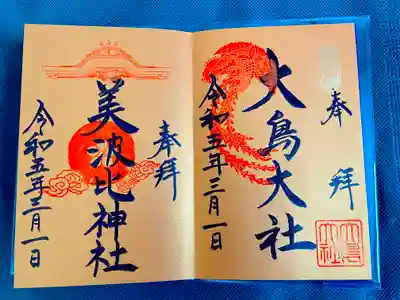 奉拝
大鳥大社
令和五年三月一日
奉拝
美波比神社
令和五年三月一日